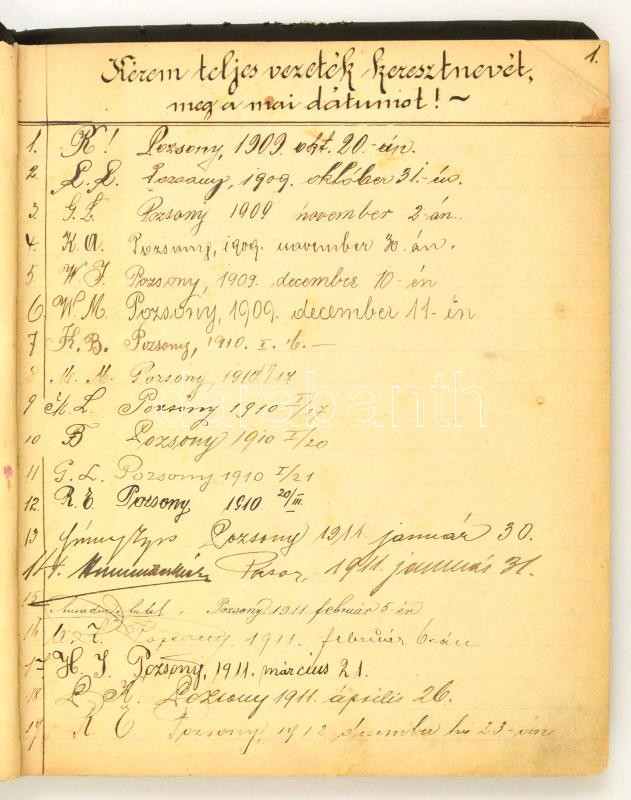 1.
Kérem teljes vezeték keresztnevét,
meg a mai dátumot! ~
1. K! Pozsony, 1909. okt. 20.-án.
2. L. L. Pozsony, 1909. október 31.-én.
3. G. L. Pozsony 1909 november 2-án.
4. K. A. Pozsony, 1909. november 30.-án.
5. W. J. Pozsony, 1909. december 10-én
6. W. M. Pozsony, 1909. december 11-én
7 K. B. Pozsony, 1910. I. 16.—
8 M. M. Pozsony, 1910 17
9 K. L. Pozsony 1910 I/17
10 B Pozsony 1910 I/20
11 G. L. Pozsony 1910 I/21
12. R. E. Pozsony 1910 20/III.
13 Pozsony 1911. január 30.
14. 1911. január 31.
15 Pozsony 1911 február 5-én
16 1911. február 6-án
17 H. J. Pozsony, 1911. március 21.
18 P. K. Pozsony 1911. április 26.
19 K. E Pozsony, 1912 december hó 23-án
darabanth